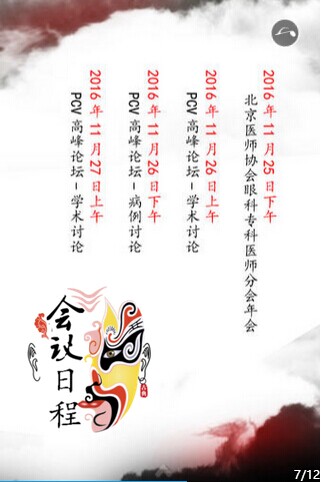 2016年11月25日下午
北京医师协会眼科专科医师分会年会
2016年11月26日上午
PCV高峰论坛-学术讨论
2016年11月26日下午
PCV高峰论坛-病例讨论
2016年11月27日上午
PCV高峰论坛-学术讨论
会议日程
7/12